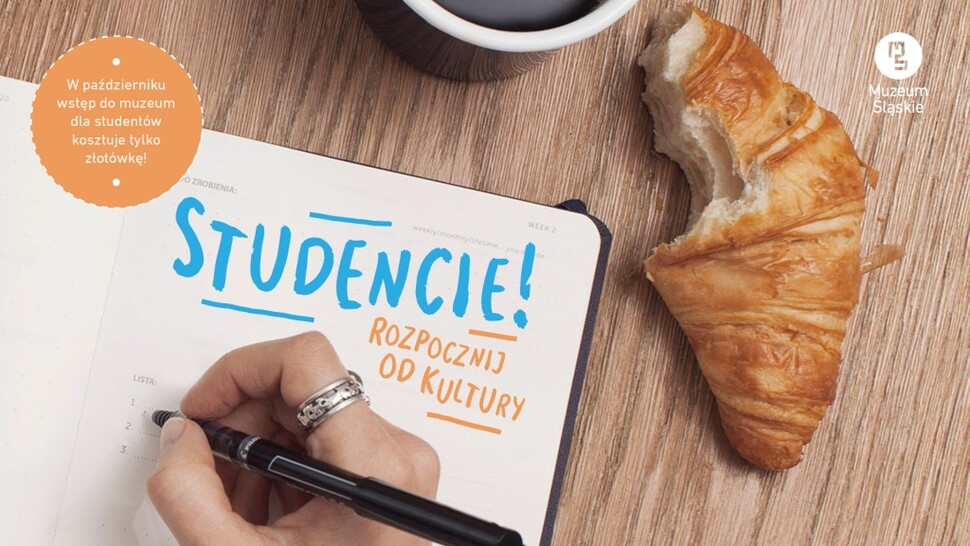 W październiku
wstęp do muzeum
dla studentów
kosztuje tylko
złotówkę!
Muzeum
Śląskie
20
DO ZROBIENIA:
WEEK 2
weekly/monthly/lifetime... you
STUDENCIE!
ROZPOCZNIJ
OD KULTURY
LISTA:
1.
2.
3.